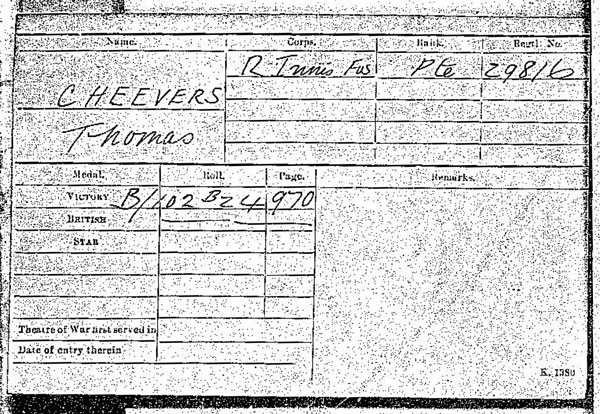 Name. Corps. Rank. Regtl. No.
R Innis Fus Pte 29816
CHEEVERS
Thomas
Medal. Roll. Page. Remarks.
VICTORY B/102 B24 970
BRITISH
STAR
Theatre of War first served in
Date of entry therein
K. 1380